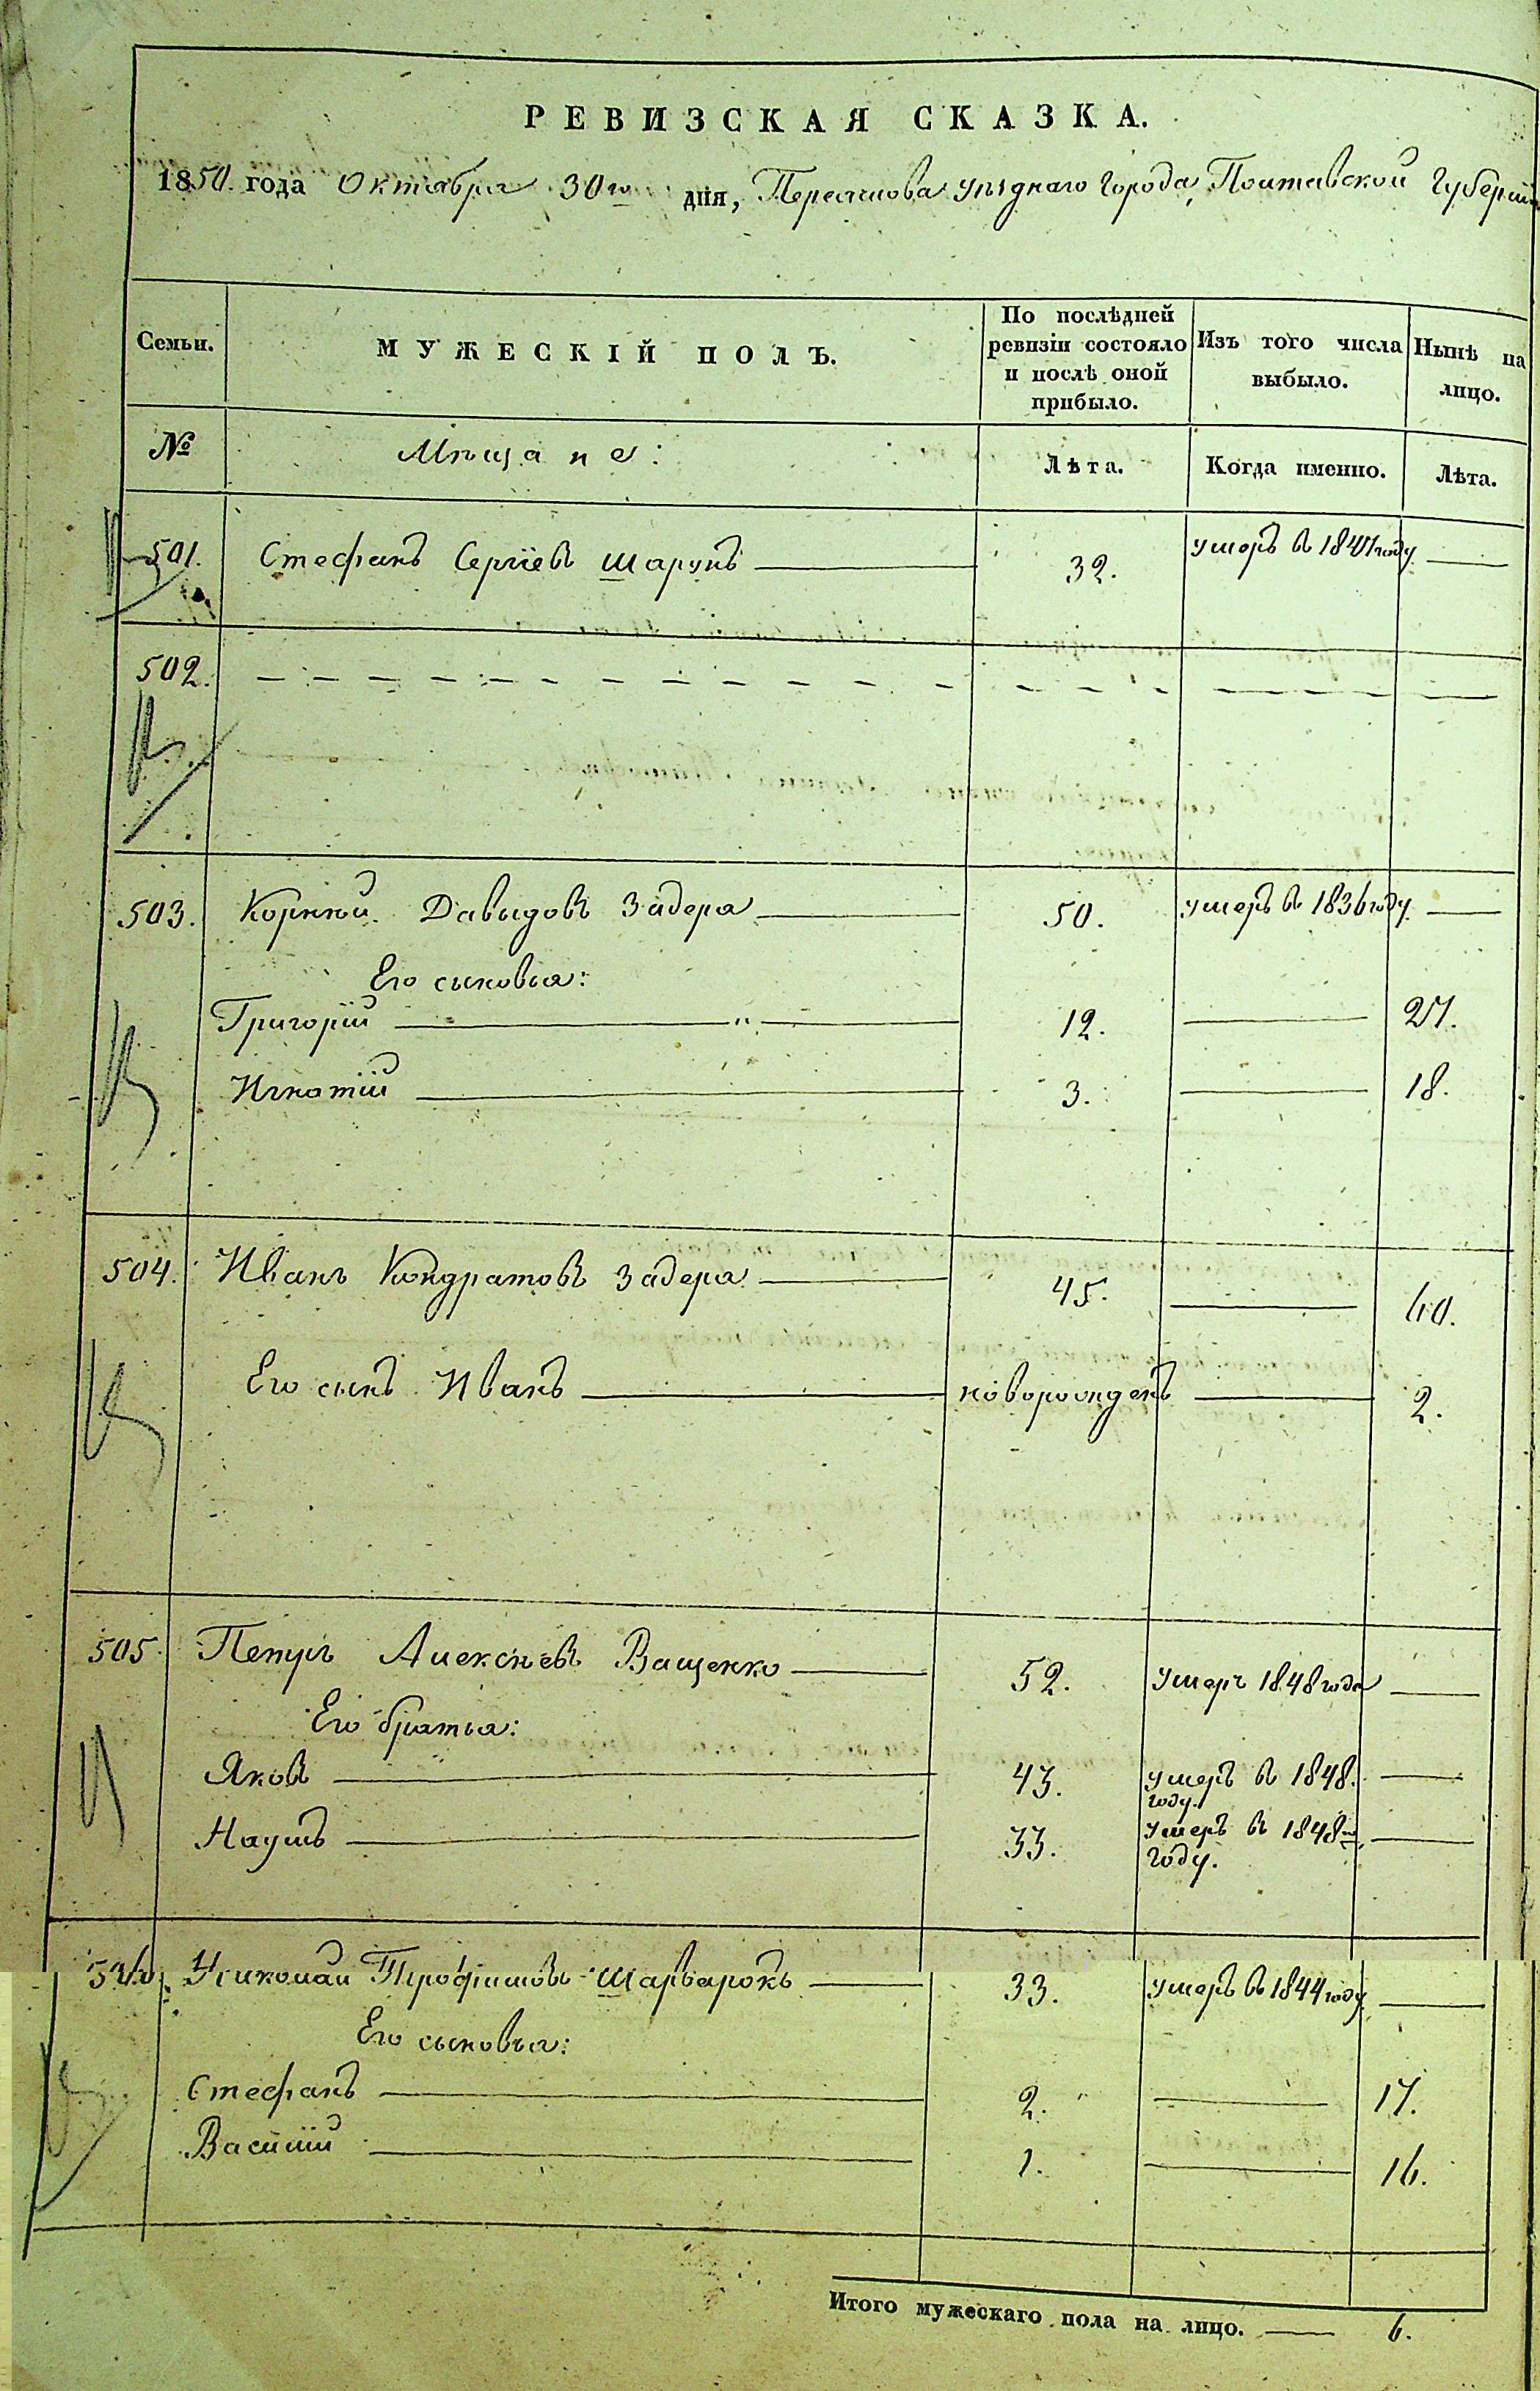 РЕВИЗСКАЯ СКАЗКА.
1850. года Октября 30го дня, Переяслова уѣзднаго города, Полтавской Губерніи
Семьи. МУЖЕСКІЙ ПОЛЪ. По послѣдней ревизіи состояло и послѣ оной прибыло. Изъ того числа выбыло. Нынѣ на лицо.
№ Мѣщане: Лѣта. Когда именно. Лѣта.
501. Стефанъ Сергіевъ 32. умеръ въ 1841 году
502.
503. Корній Давыдовъ Задера 50. умеръ въ 1836 году
Его сыновья:
Григорій 12. 27.
Игнатій 3. 18.
504. Иванъ Кондратовъ Задера 45. 60.
Его сынъ Иванъ новорожденъ 2.
505. Петръ Алексѣевъ Ващенко 52. умеръ 1848 года
Его братья:
Яковъ 43. умеръ въ 1848. году.
Наумъ 33. умеръ въ 1848м году.
506. Николай Трофимовъ Шарварокъ 33. умеръ въ 1844 году
Его сыновья:
Стефанъ 2. 17.
Василій 1. 16.
Итого мужескаго пола на лицо. 6.